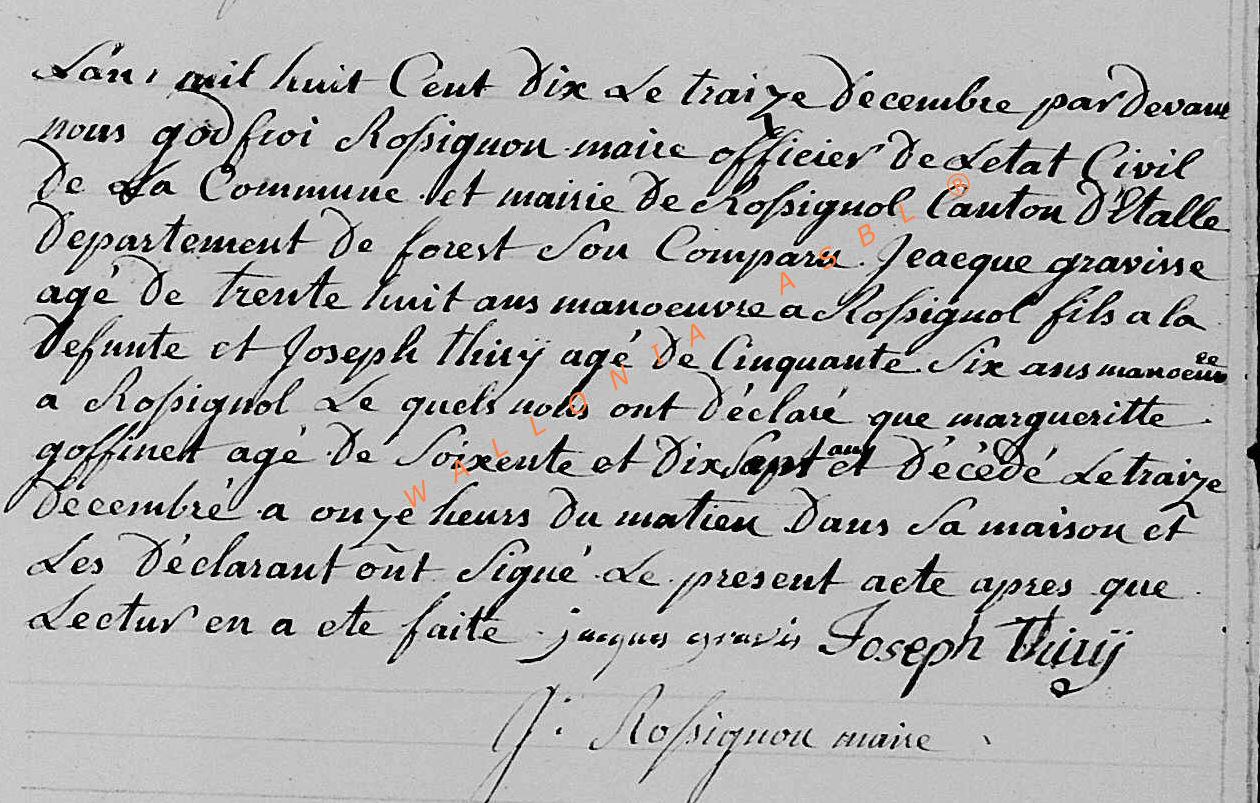 L'an mil huit Cent Dix Le traize Decembre par Devant
nous godfroi Rossignon maire officier De Letat Civil
De La Commune et mairie De Rossignol Canton D'Etalle
Departement De forest Son Comparu Jeaeque gravisse
agé De trente huit ans manoeuvre a Rossignol fils a la
Defunte et Joseph thirÿ agé De Cinquante Six ans manoeuvre
a Rossignol Le quels nous ont Déclaré que margueritte
goffinet agé De Soixente et Dix Sept ans et Décédé Le traize
Decembre a onze heurs Du matien Dans Sa maison et
Les Déclarant ont Signé Le present acte apres que
Lectur en a ete faite jacques gravis Joseph Thirÿ
G. Rossignon maire
WALLONIA ASBL ®